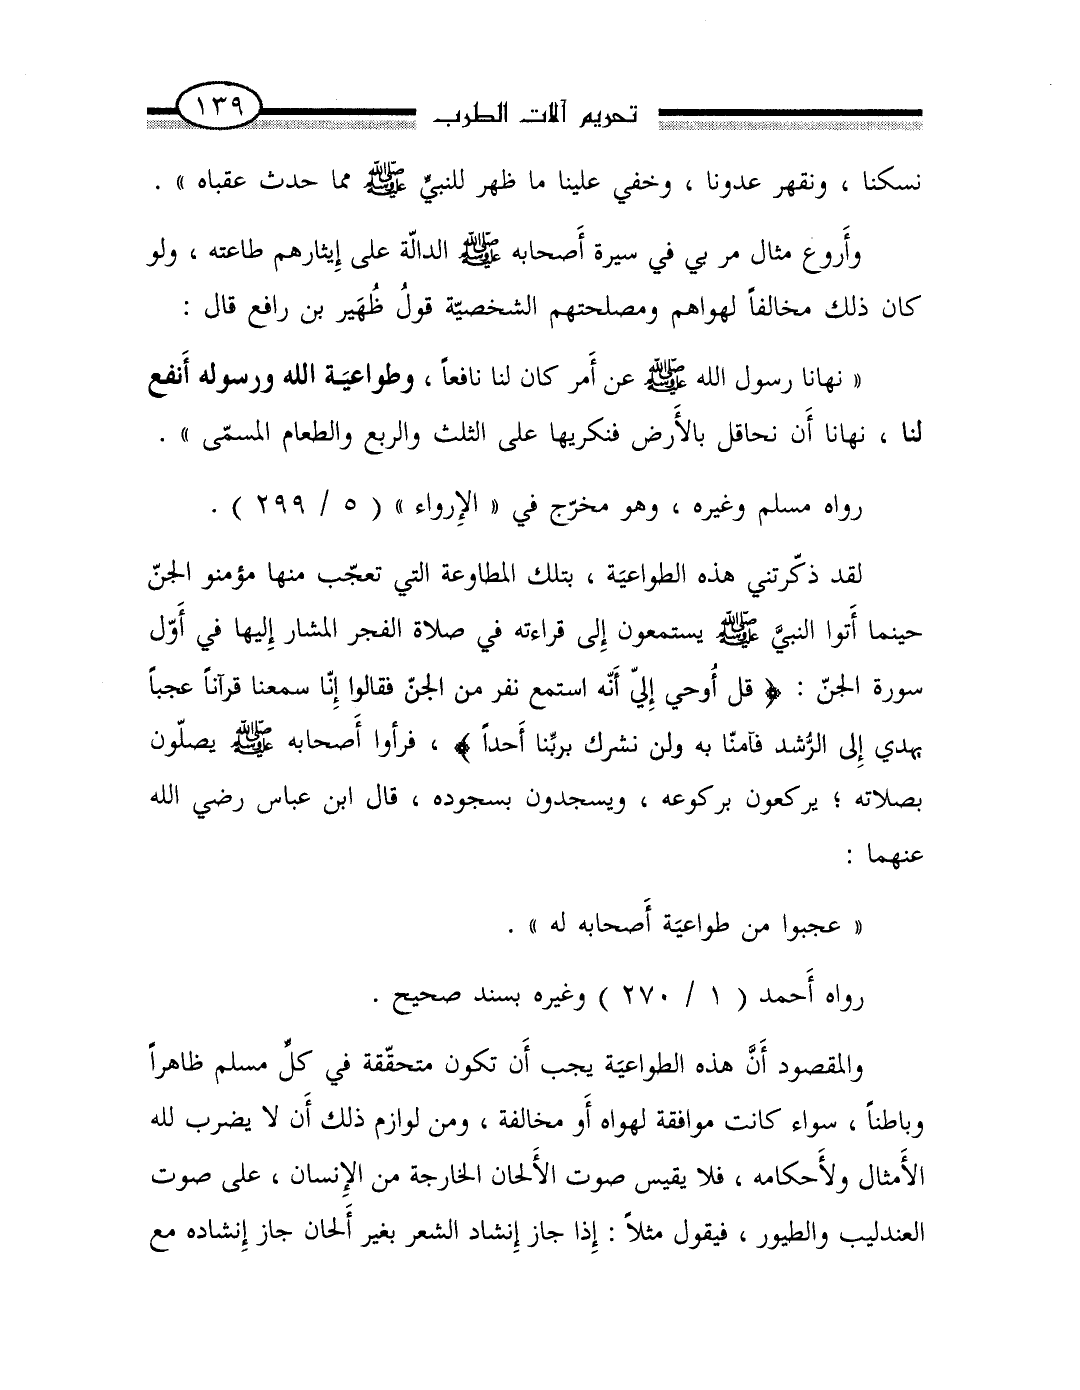 تحريم آلات الطرب ١٣٩
نسكنا ، ونقهر عدونا ، وخفي علينا ما ظهر للنبيّ ﷺ مما حدث عقباه » .
وأَروع مثال مر بي في سيرة أَصحابه ﷺ الدالّة على إِيثارهم طاعته ، ولو
كان ذلك مخالفاً لهواهم ومصلحتهم الشخصيّة قولُ ظُهَير بن رافع قال :
« نهانا رسول الله ﷺ عن أَمر كان لنا نافعاً ، وطواعيَة الله ورسوله أَنفع
لنا ، نهانا أَن نحاقل بالأَرض فنكريها على الثلث والربع والطعام المسمّى » .
رواه مسلم وغيره ، وهو مخرّج في « الإِرواء » ( ٥ / ٢٩٩ ) .
لقد ذكّرتني هذه الطواعيَة ، بتلك المطاوعة التي تعجّب منها مؤمنو الجنّ
حينما أَتوا النبيَّ ﷺ يستمعون إِلى قراءته في صلاة الفجر المشار إِليها في أَوّل
سورة الجنّ : ﴿ قل أُوحي إِليّ أَنّه استمع نفر من الجنّ فقالوا إِنّا سمعنا قرآناً عجباً
يهدي إِلى الرُّشد فآمنّا به ولن نشرك بربِّنا أَحداً ﴾ ، فرأوا أَصحابه ﷺ يصلّون
بصلاته ؛ يركعون بركوعه ، ويسجدون بسجوده ، قال ابن عباس رضي الله
عنهما :
« عجبوا من طواعيَة أَصحابه له » .
رواه أَحمد ( ١ / ٢٧٠ ) وغيره بسند صحيح .
والمقصود أَنَّ هذه الطواعيَة يجب أَن تكون متحقّقة في كلِّ مسلم ظاهراً
وباطناً ، سواء كانت موافقة لهواه أَو مخالفة ، ومن لوازم ذلك أَن لا يضرب لله
الأَمثال ولأَحكامه ، فلا يقيس صوت الأَلحان الخارجة من الإِنسان ، على صوت
العندليب والطيور ، فيقول مثلاً : إِذا جاز إِنشاد الشعر بغير أَلحان جاز إِنشاده مع